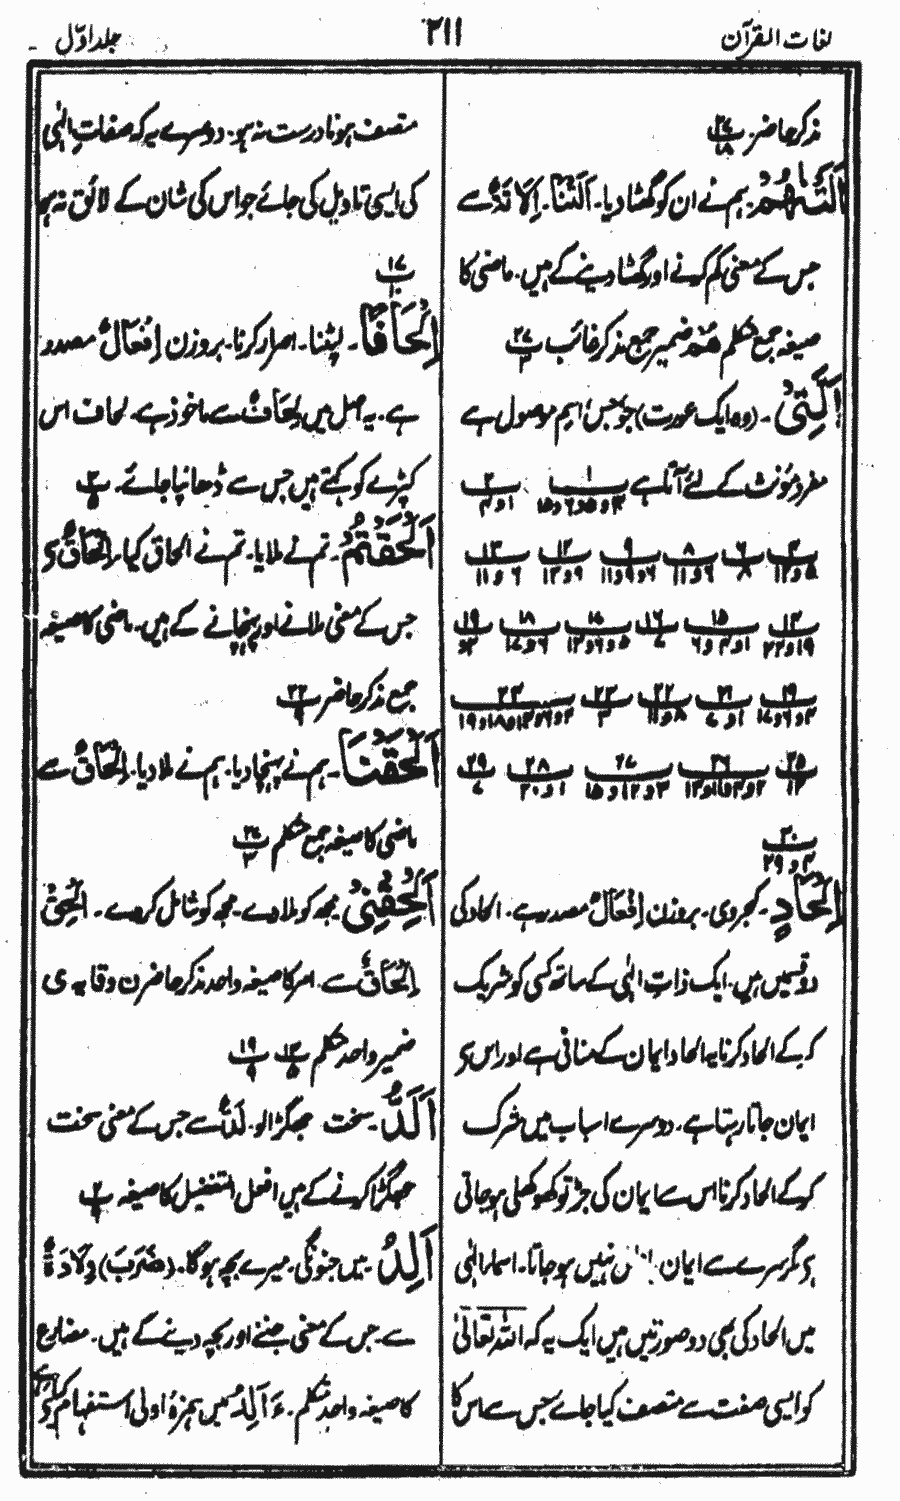 لغات القرآن
۲۱۱
جلد اوّل
مذکر حاضر۔ ۲۷/۱۸
اَلَتْنٰھُمْ۔ ہم نے ان کو گھٹا دیا۔ اَلَتْنَا۔ اِلَاتَۃٌ سے
جس کے معنی کم کرنے اور گھٹا دینے کے ہیں۔ ماضی کا
صیغہ جمع متکلم ھُمْ ضمیر جمع مذکر غائب ۲۷/۳
اَلَّتِیْ۔ (وہ ایک عورت) جو جس، اسم موصول ہے
مفرد مؤنث کے لئے آتا ہے ۱/۳ و ۵ و ۶ و ۱۵ ۲/۱ و ۴
۴/۵ و ۱۴ ۶/۸ ۸/۶ و ۱۱ ۹/۶ و ۹ و ۱۱ ۱۲/۹ و ۱۳ ۱۳/۶ و ۱۱
۱۴/۱۹ و ۲۲ ۱۵/۱ و ۴ و ۶ ۱۶/۷ ۱۷/۵ و ۶ و ۱۳ ۱۸/۶ و ۱۷ ۱۹/۳و
۱۹/۳ و ۶ و ۱۷ ۲۱/۱ و ۷ ۲۲/۸ و ۱۱ ۲۳/۳ ۲۴/۲ و ۶ و ۱۴ و ۱۸ و ۱۹
۲۵/۱۳ ۲۶/۲ و ۳ و ۱۱ و ۱۳ ۲۷/۳ و ۱۲ و ۱۵ ۲۸/۱ و ۲۰ ۲۹/۷
۳۰/۴ و ۲۹
اِلْحَادٍ۔ کجروی۔ بروزن اِفْعَالٌ مصدر ہے۔ الحاد کی
دو قسمیں ہیں۔ ایک ذاتِ الٰہی کے ساتھ کسی کو شریک
کر کے الحاد کرنا یہ الحاد ایمان کے منافی ہے اور اس کی
ایمان جاتا رہتا ہے۔ دوسرے اسباب میں شرک
کر کے الحاد کرنا اس سے ایمان کی جڑ تو کھوکھلی ہو جاتی
ہے مگر سرے سے ایمان نہیں ہو جاتا۔ اسماء الٰہی
میں الحاد کی بھی دو صورتیں ہیں ایک یہ کہ اللہ تعالیٰ
کو ایسی صفت سے متصف کیا جائے جس سے اس کا
متصف ہونا درست نہ ہو۔ دوسرے یہ کہ صفاتِ الٰہی
کی ایسی تاویل کی جائے جو اس کی شان کے لائق نہ ہو
۱۷/۱۰
اِلْحَافًا۔ لپٹنا۔ اصرار کرنا۔ بروزن اِفْعَالٌ مصدر
ہے۔ یہ اصل میں لِحَافٌ سے ماخوذ ہے۔ لحاف اس
کپڑے کو کہتے ہیں جس سے ڈھانپا جائے۔ ۳/۵
اَلْحَقْتُمْ۔ تم نے ملایا۔ تم نے الحاق کیا۔ اِلْحَاقٌ ی
جس کے معنی ملانے اور پہنچانے کے ہیں۔ ماضی کا صیغہ
جمع مذکر حاضر ۲۲/۹
اَلْحَقْنَا۔ ہم نے پہنچا دیا۔ ہم نے ملا دیا۔ اِلْحَاقٌ سے
ماضی کا صیغہ جمع متکلم ۲۷/۳
اَلْحِقْنِیْ۔ مجھ کو ملا دے۔ مجھ کو شامل کر دے۔ اَلْحِقْ
اِلْحَاقٌ سے۔ امر کا صیغہ واحد مذکر حاضر ن وقایہ ی
ضمیر واحد متکلم ۱۳/۵ ۱۹/۹
اَلَدُّ۔ سخت جھگڑالو۔ لَدٌّ سے جس کے معنی سخت
جھگڑا کرنے کے ہیں افعل التفضیل کا صیغہ ۲/۹
اَلِدُ۔ میں جنونگی۔ میرے بچہ ہوگا۔ (ضَرَبَ) وِلَادَۃٌ
سے۔ جس کے معنی جننے اور بچہ دینے کے ہیں۔ مضارع
کا صیغہ واحد متکلم۔ ءَ اَلِدُ میں ہمزۂ اولیٰ استفہام کیلئے